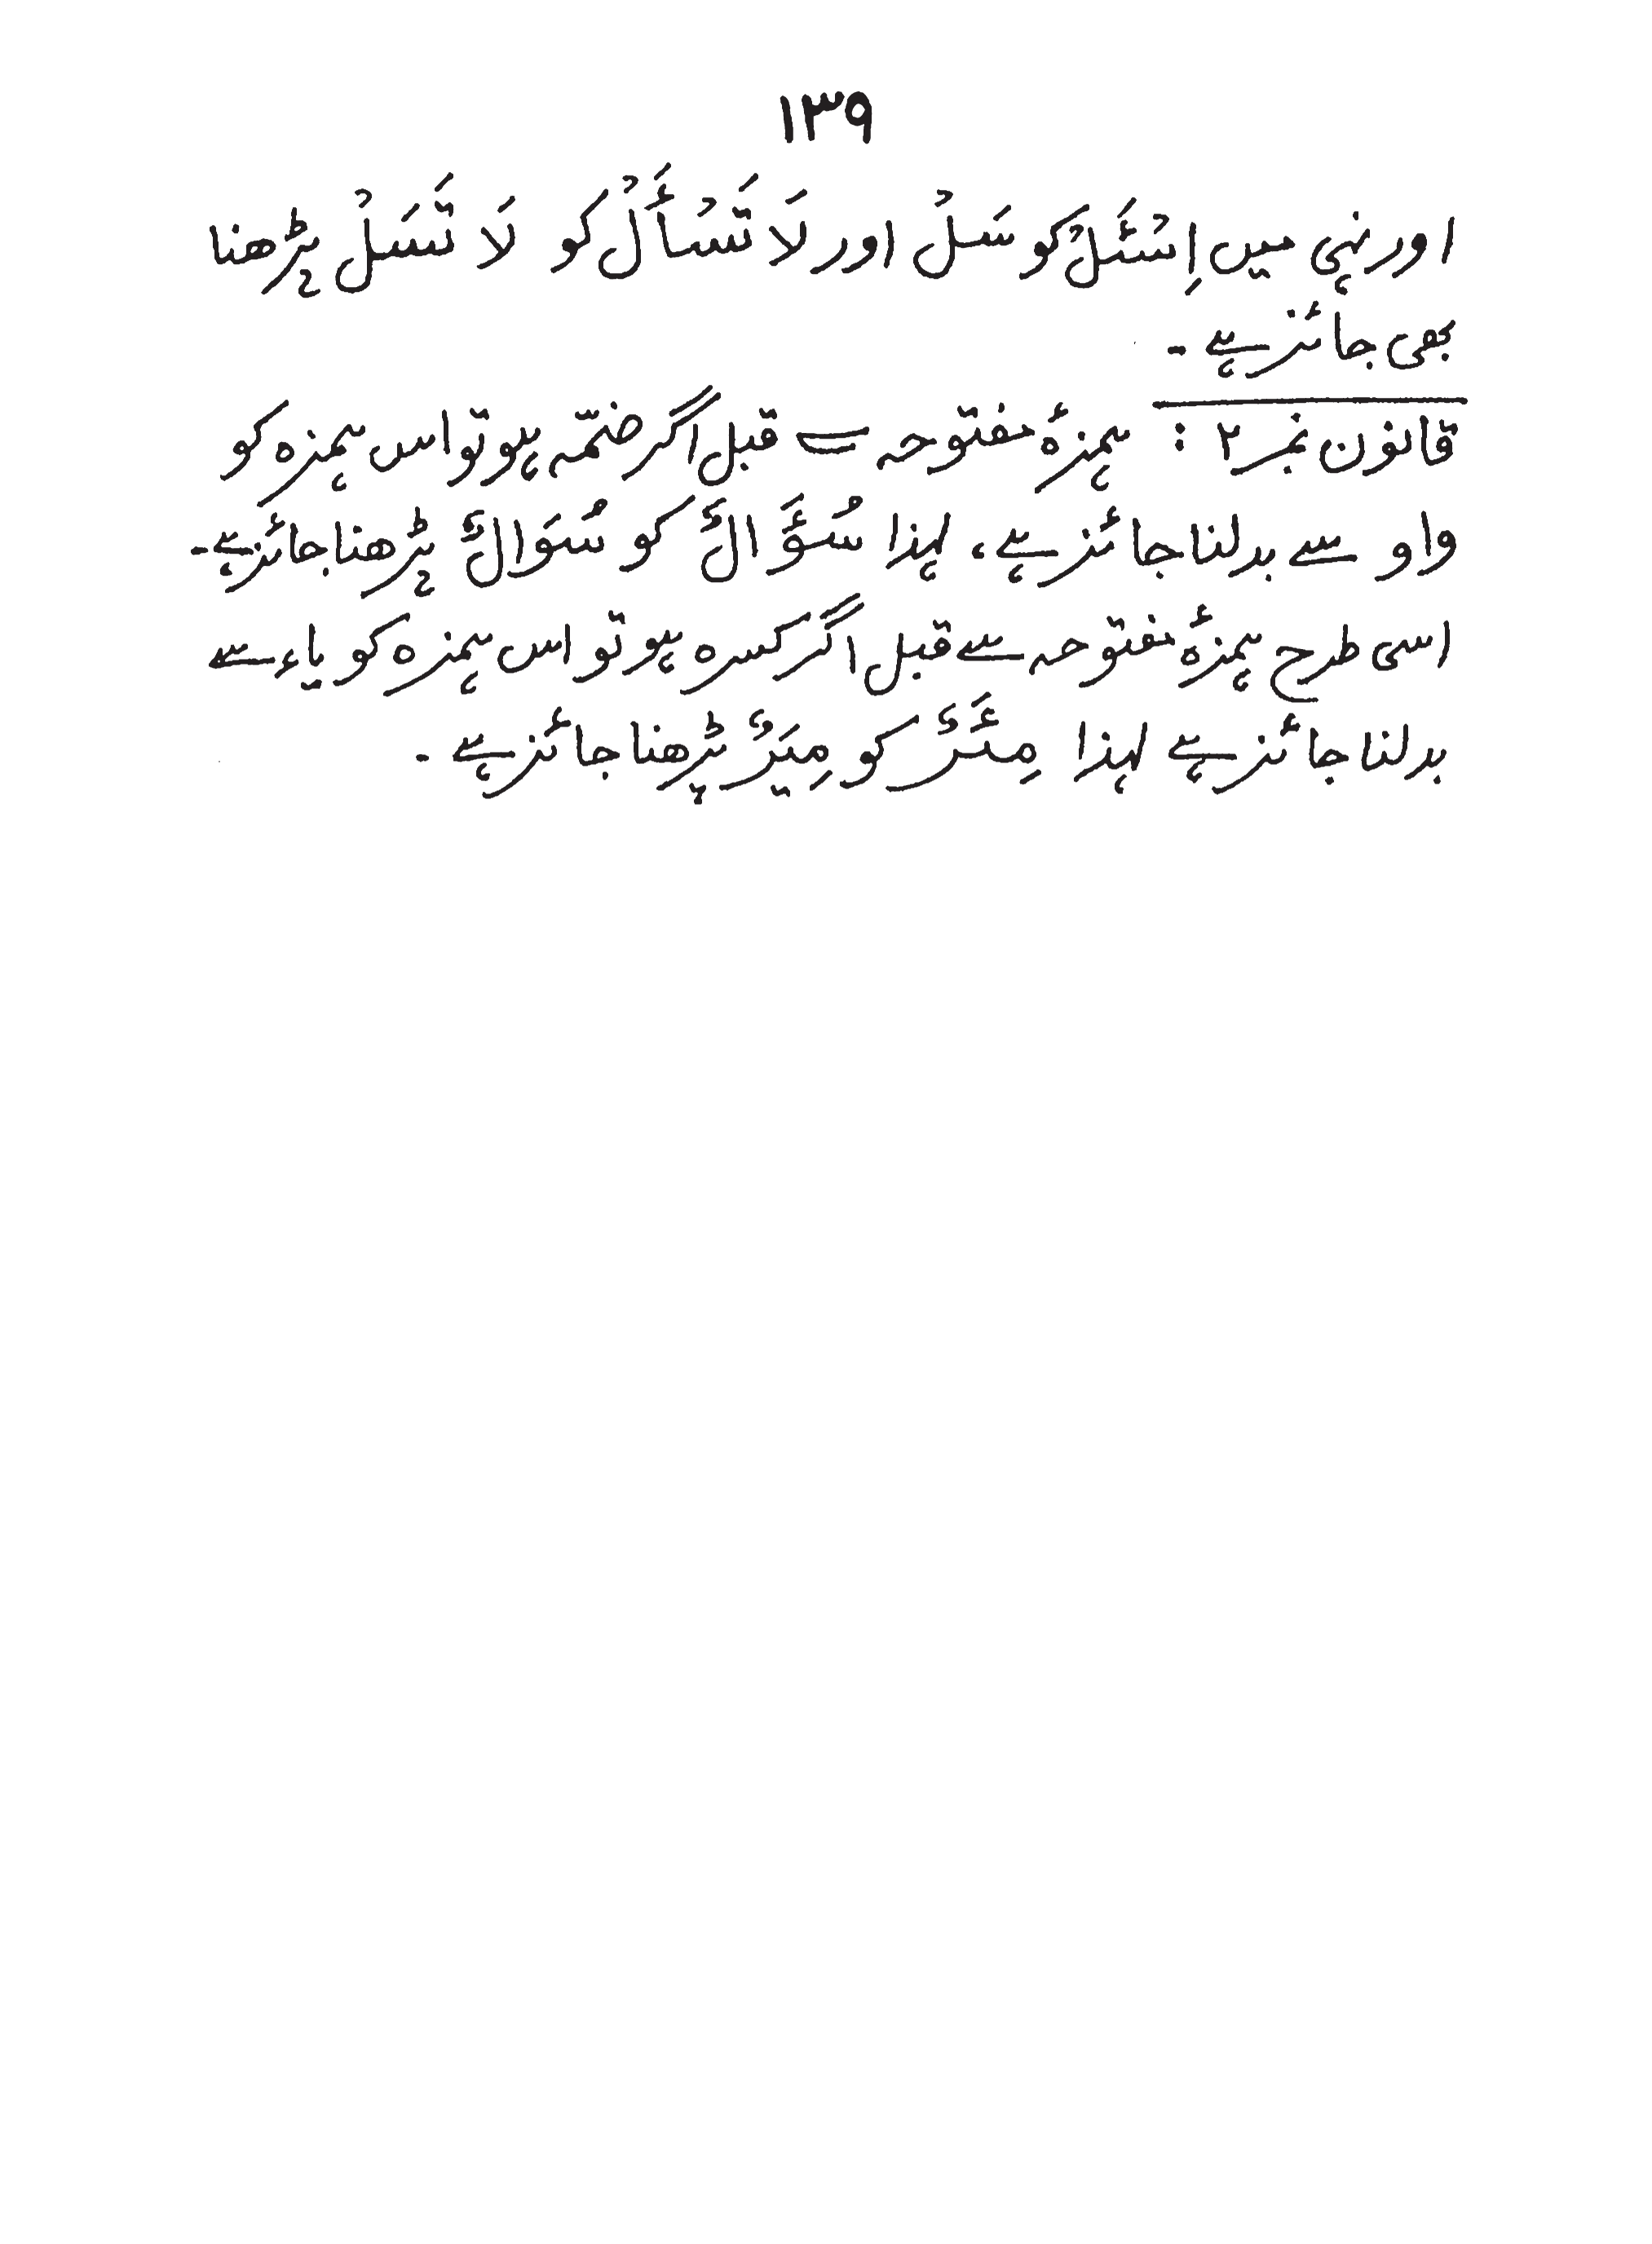 ۱۳۹
اور نہی میں اِسْئَلْ کو سَلْ اور لَا تَسْأَلْ کو لَا تَسَلْ پڑھنا
بھی جائز ہے ۔
قانون نمبر ۲ : ہمزۂ مفتوحہ سے قبل اگر ضمّہ ہو تو اس ہمزہ کو
واو سے بدلنا جائز ہے، لہذا سُؤَالٌ کو سُوَالٌ پڑھنا جائز ہے۔
اسی طرح ہمزۂ مفتوحہ سے قبل اگر کسرہ ہو تو اس ہمزہ کو یاء سے
بدلنا جائز ہے لہذا مِئَرٌ کو مِیَرٌ پڑھنا جائز ہے ۔